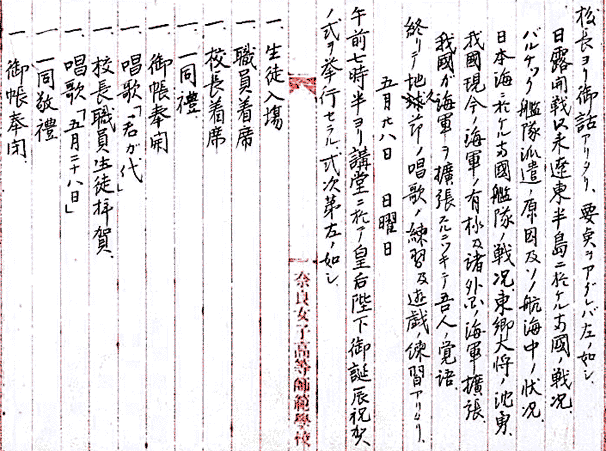 校長ヨリ御話アリタリ、要点ヲアグレバ左ノ如シ
日露開戦以来遼東半島ニ於ケル両國ノ戦况
バルチック艦隊派遣ノ原因及ソノ航海中ノ状况
日本海ニ於ケル両國艦隊ノ戦况、東郷大将ノ沈勇
我國現今ノ海軍ノ有様及諸外国ノ海軍擴張
我國ガ海軍ヲ擴張スルニツキテ吾人ノ覚悟
終リテ地久節ノ唱歌ノ練習及遊戯ノ練習アリタリ
五月廿八日 日曜日
午前七時半ヨリ講堂ニ於テ皇后陛下御誕辰祝賀
ノ式ヲ挙行セラル、式次第左ノ如シ
奈良女子高等師範學校
一 生徒入場
一 職員着席
一 校長着席
一 一同禮
一 御帳奉開
一 唱歌「君が代」
一 校長職員生徒拝賀
一 唱歌「五月二十八日」
一 一同敬禮
一 御帳奉閉